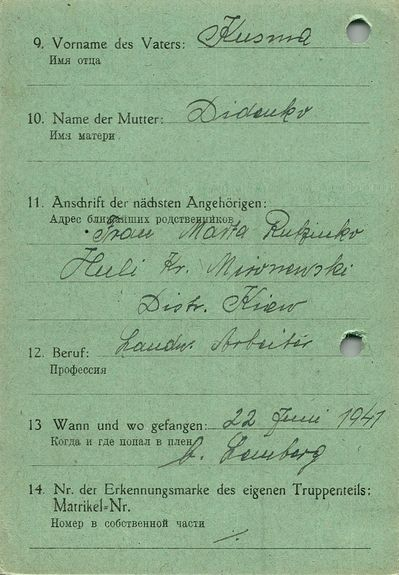 9. Vorname des Vaters: Kusma
Имя отца
10. Name der Mutter: Didenko
Имя матери
11. Anschrift der nächsten Angehörigen:
Адрес ближайших родственников
Frau Marta
Huli Kr. Mironewski
Distr. Kiew
12. Beruf: Landw. Arbeiter
Профессия
13 Wann und wo gefangen: 22 Juni 1941
Когда и где попал в плен
b. Lemberg
14. Nr. der Erkennungsmarke des eigenen Truppenteils:
Matrikel-Nr.
Номер в собственной части